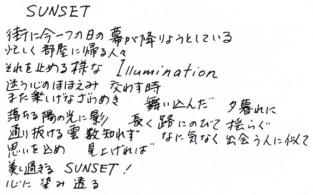 SUNSET
街に今一つの日の幕が降りようとしている
忙しく部屋に帰る人々
それを止める様な Illumination
迷う心のほほえみ 交わす時
また楽しいなざわめき 舞い込んだ 夕暮れに
落ちる陽の光に影 長く路にのびて揺らぐ
通り抜ける雲数知れず なに気なく出会う人に似て
思いを止め 見上げれば
美し過ぎる SUNSET!
心に染み透る